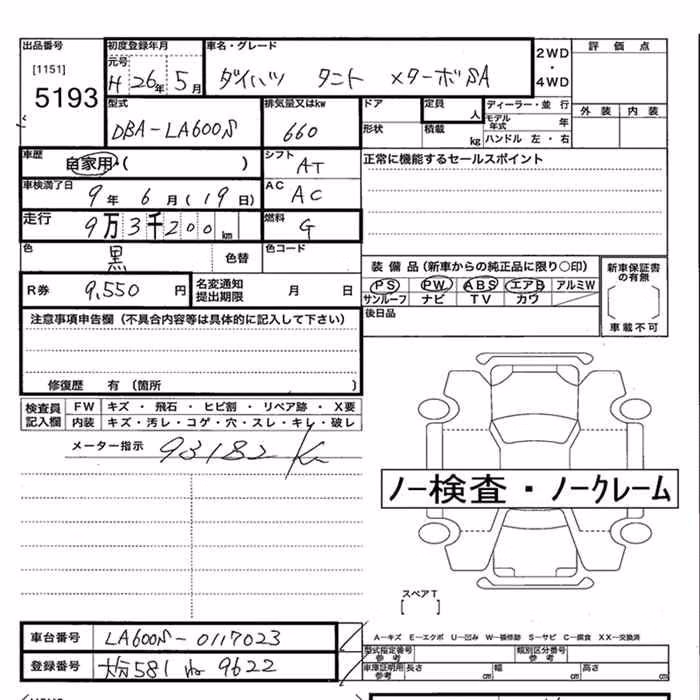 出品番号 初度登録年月 車名・グレード 2WD・4WD 評価点
[1151] 元号
5193 H 26年 5月 ダイハツ タント Xターボ SA
型式 排気量又はkw ドア 定員 人 ディーラー・並行 外装 内装
DBA-LA600S 660 形状 積載 kg モデル年式 年
ハンドル 左・右
車歴 自家用・( ) シフト AT 正常に機能するセールスポイント
車検満了日 9年 6月(19日) AC AC
走行 9万3千200km 燃料 G
色 黒 色替 色コード
装備品(新車からの純正品に限り○印) 新車保証書の有無
R券 9,550円 名変通知提出期限 月 日
PS PW ABS エアB アルミW
サンルーフ ナビ TV カワ
後日品 車載不可
注意事項申告欄(不具合内容等は具体的に記入して下さい)
修復歴 有 (箇所 )
検査員記入欄 FW キズ・飛石・ヒビ割・リペア跡・X要
内装 キズ・汚レ・コゲ・穴・スレ・キレ・破レ
メーター指示 93182 km
ノー検査・ノークレーム
スペアT
[ ]
A-キズ E-エクボ U-凹み W-補修跡 S-サビ C-腐食 XX-交換済
車台番号 LA600S-0117023 型式指定番号 参考 類別区分番号 参考
登録番号 581 9622 車庫証明用 参考 長さ cm 幅 cm 高さ cm